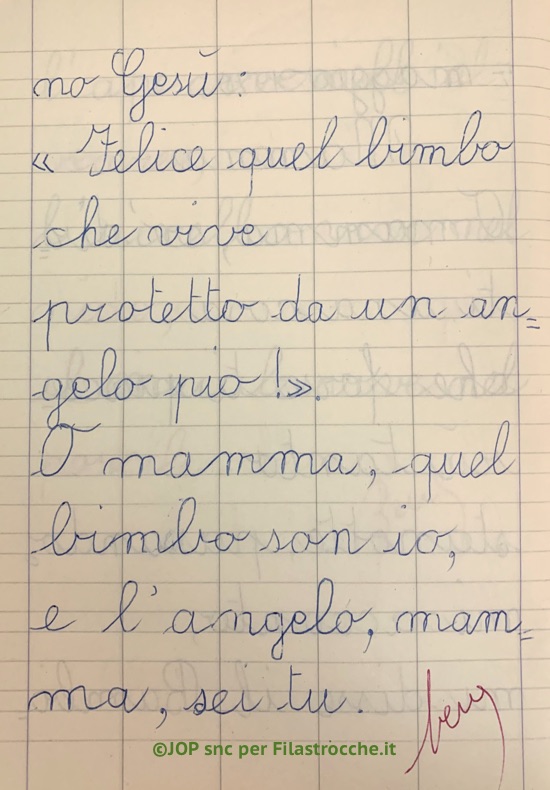 no Gesù:
« Felice quel bimbo
che vive
protetto da un an=
gelo pio!».
O mamma, quel
bimbo son io,
e l'angelo, mam=
ma, sei tu.
©JOP snc per Filastrocche.it